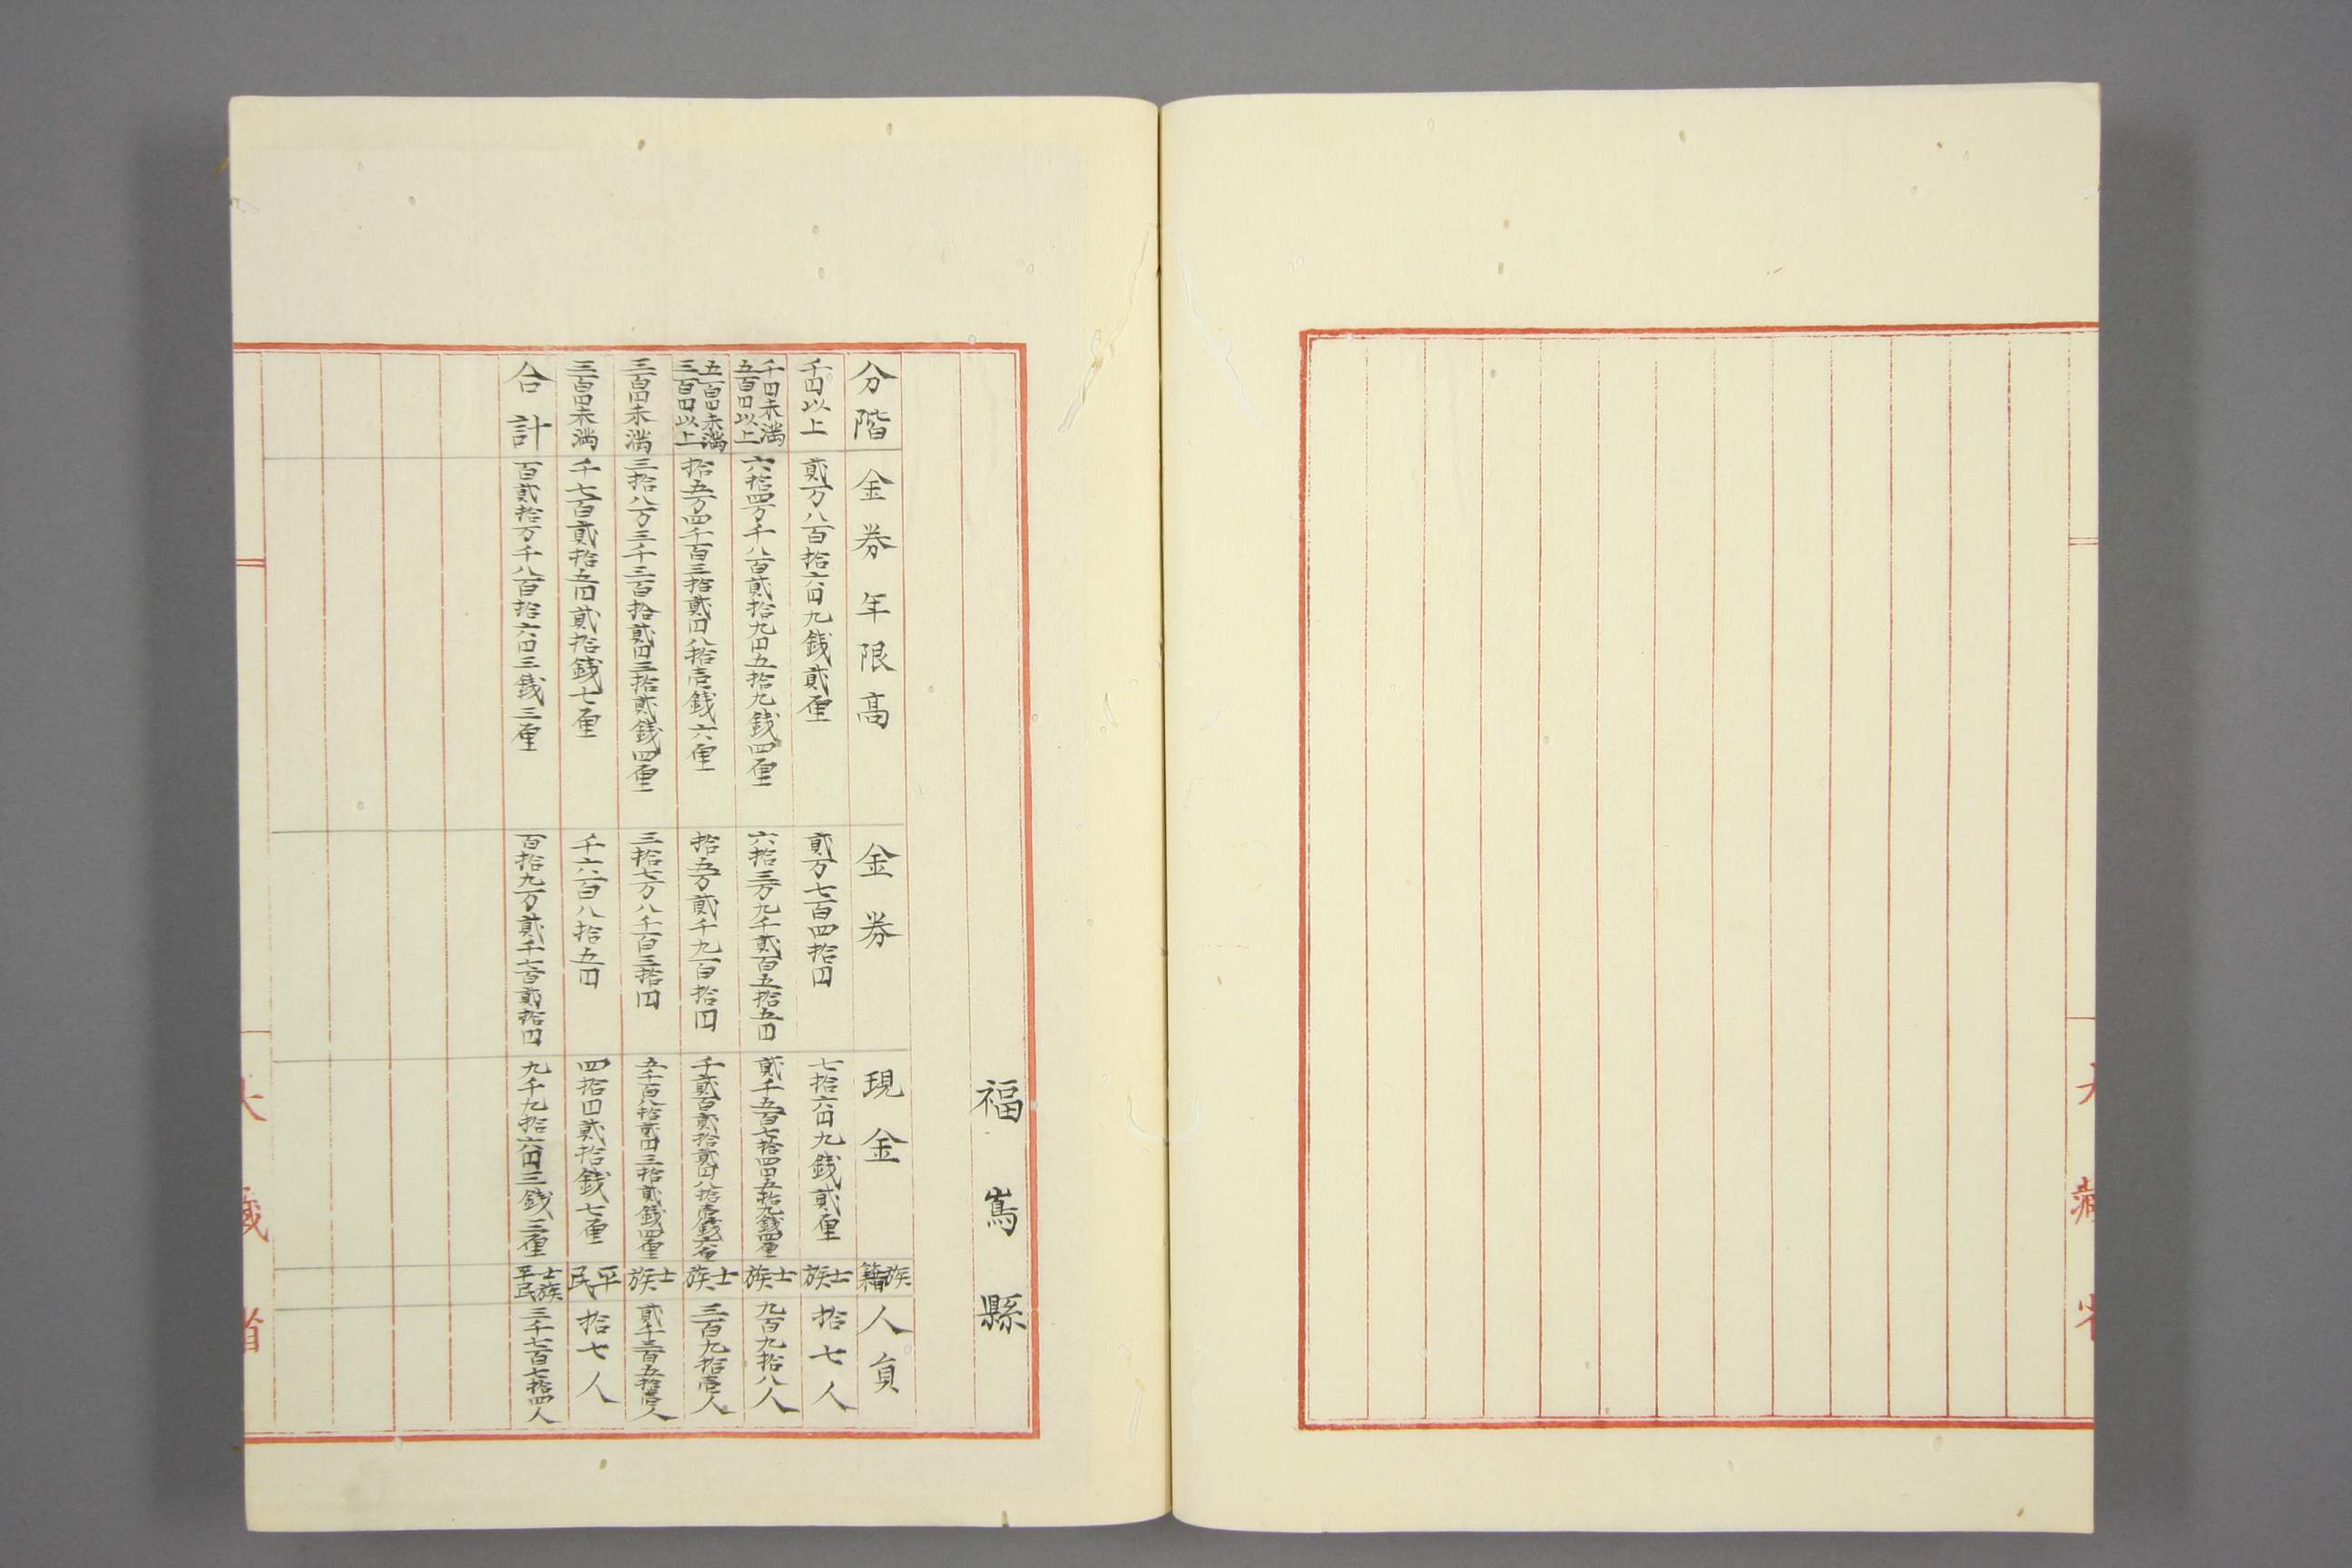 大藏省
福嶌縣
分階 金券年限高 金券 現金 族籍 人員
千円以上 貳万八百拾六円九銭貳厘 貳万七百四拾円 七拾六円九銭貳厘 士族 拾七人
千円未満五百円以上 六拾四万千八百貳拾九円五拾九銭四厘 六拾三万九千貳百五拾五円 貳千五百七拾四円五拾九銭四厘 士族 九百九拾八人
五百円未満三百円以上 拾五万四千百三拾貳円八拾壱銭六厘 拾五万貳千九百拾円 千貳百貳拾貳円八拾壱銭六厘 士族 三百九拾壱人
三百円未満 三拾八万三千三百拾貳円三拾貳銭四厘 三拾七万八千百三拾円 五千百八拾貳円三拾貳銭四厘 士族 貳千三百五拾壱人
三百円未満 千七百貳拾五円貳拾銭七厘 千六百八拾五円 四拾円貳拾銭七厘 平民 拾七人
合計 百貳拾万千八百拾六円三銭三厘 百拾九万貳千七百貳拾円 九千九拾六円三銭三厘 士族平民 三千七百七拾四人
大藏省